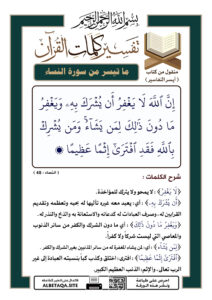 بسم الله الرحمن الرحيم
تفسير كلمات القرآن
ما تيسر من سورة النساء
منقول من كتاب
( أيسر التفاسير )
إِنَّ ٱللَّهَ لَا يَغْفِرُ أَن يُشْرَكَ بِهِۦ وَيَغْفِرُ
مَا دُونَ ذَٰلِكَ لِمَن يَشَآءُ ۚ وَمَن يُشْرِكْ
بِٱللَّهِ فَقَدِ ٱفْتَرَىٰٓ إِثْمًا عَظِيمًا
( النساء : 48 )
شرح الكلمات :
﴿لَا يَغْفِرُ﴾ : لا يمحو ولا يترك للمؤاخذة.
﴿أَن يُشْرَكَ بِهِ﴾ : أي: يعبد معه غيره تأليهاً له بحبه وتعظيمه وتقديم
القرابين له، وصرف العبادات له كدعائه والاستعانة به والذبح والنذر له.
﴿وَيَغْفِرُ مَا دُونَ ذَٰلِكَ﴾ : أي ما دون الشرك والكفر من سائر الذنوب
والمعاصي التي ليست شركاً ولا كفراً.
﴿لِمَن يَشَاءُ﴾ : أي: لمن يشاء المغفرة له من سائر المذنبين بغير الشرك والكفر.
﴿افْتَرَىٰ إِثْمًا عَظِيمًا﴾ : افترى: اختلق وكذب كذباً بنسبته العبادة إلى غير
الرب تعالى، والإثم: الذنب العظيم الكبير.
ALBETAQA.SITE